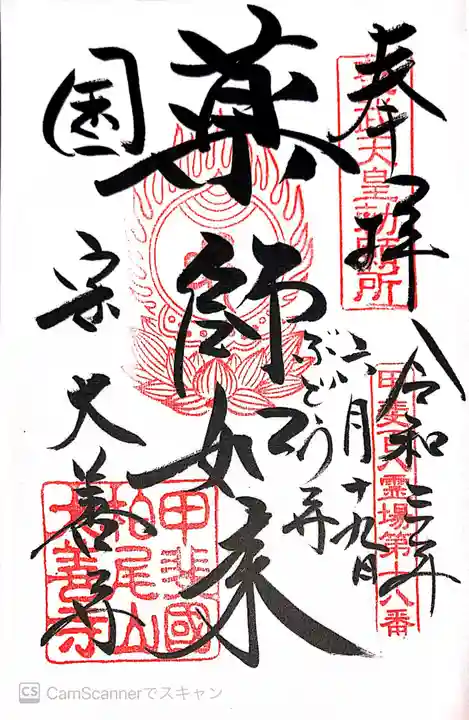 奉拝
令和三年
六月十九日
ぶどう寺
薬師如来
国宗大善寺
聖武天皇勅願所
甲斐百八霊場第十八番
甲斐國
柏尾山
大善寺
CS CamScannerでスキャン